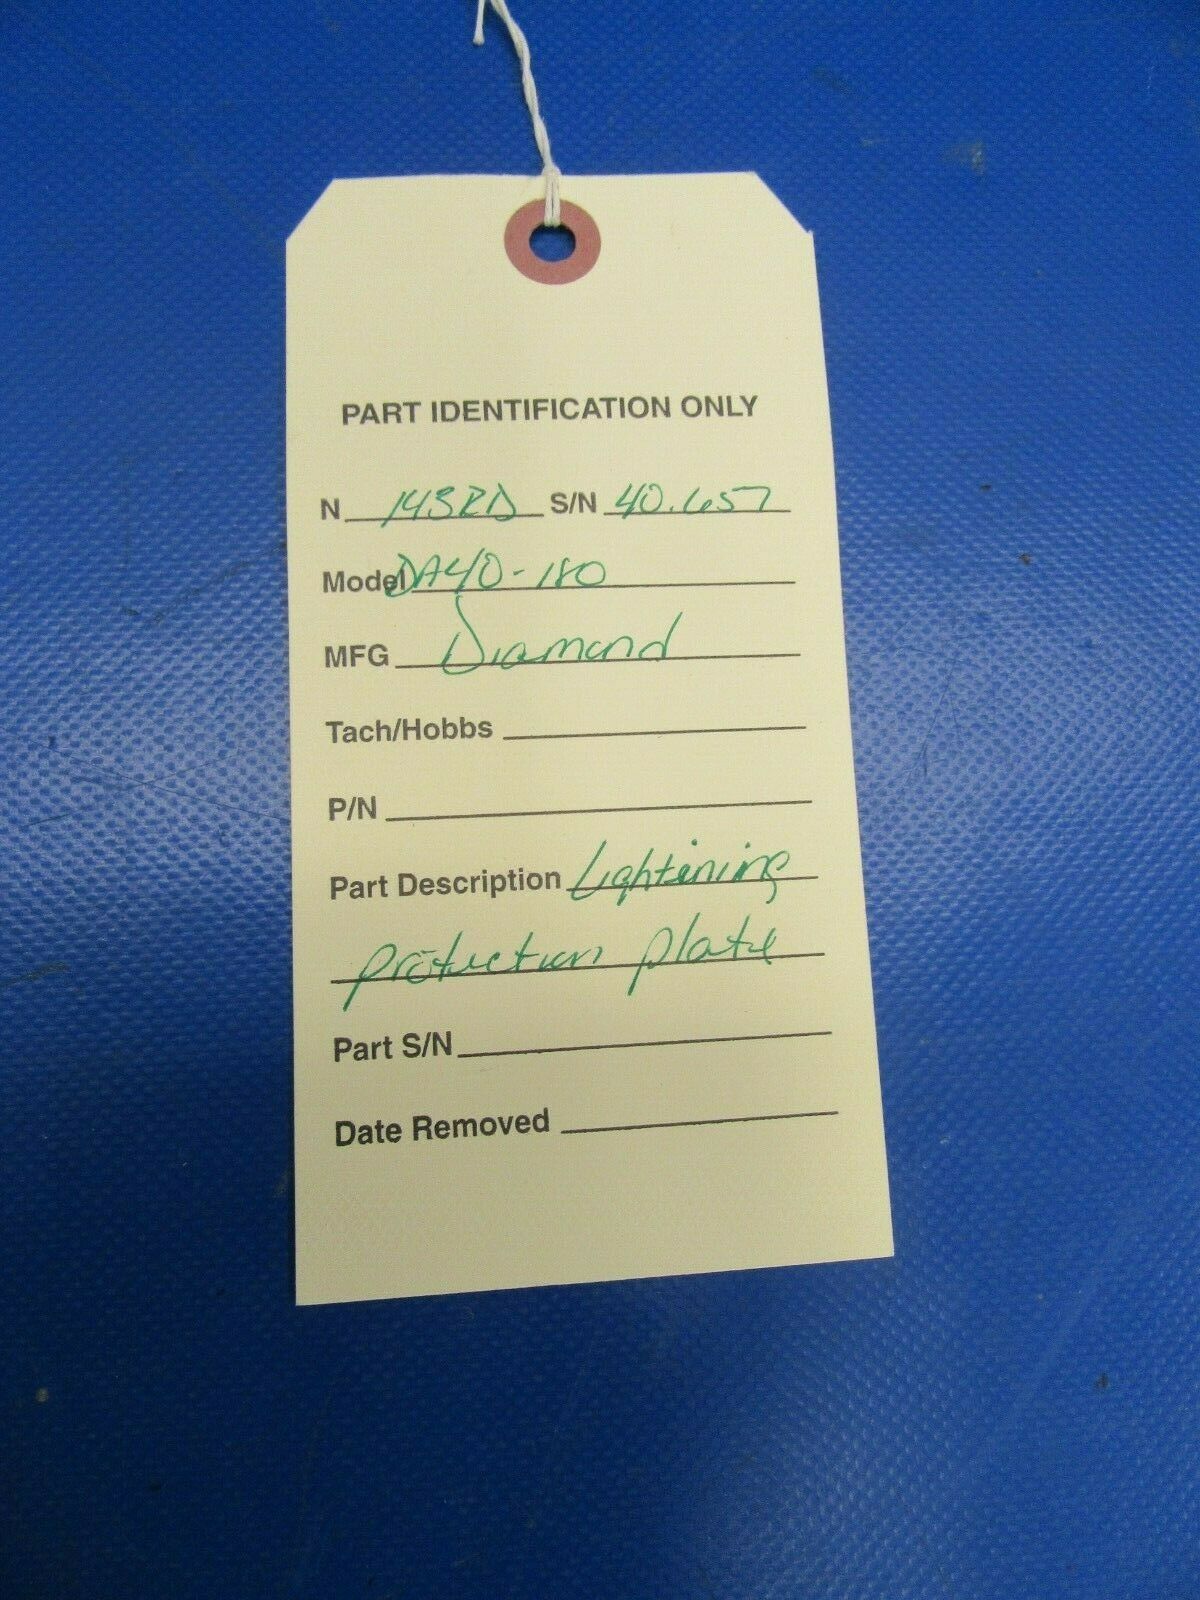 PART IDENTIFICATION ONLY
N 143RD S/N 40.657
Model DA40-180
MFG Diamond
Tach/Hobbs
P/N
Part Description Lightining
protection plate
Part S/N
Date Removed